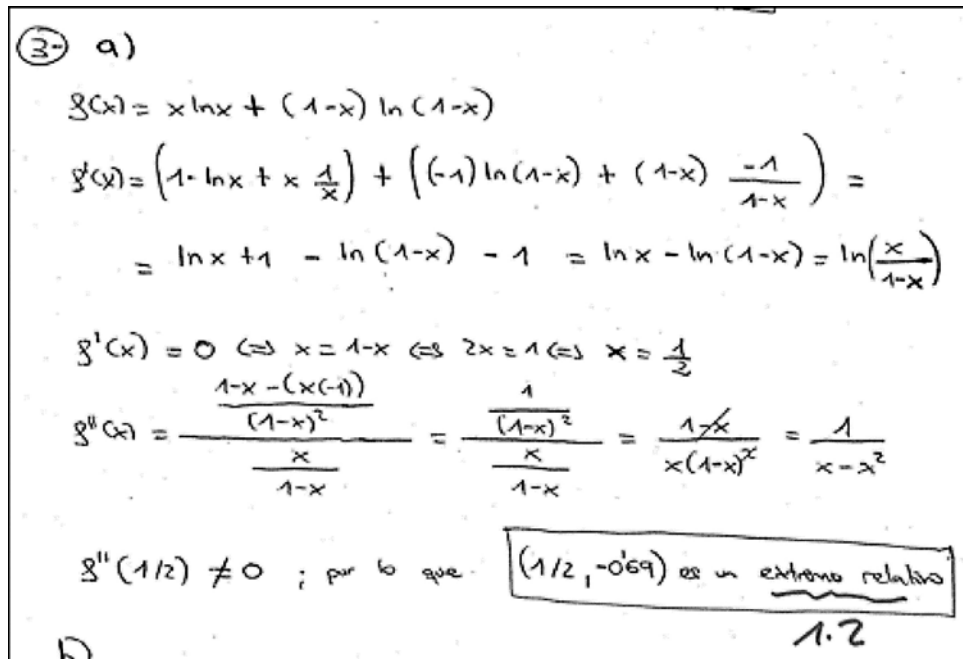 3- a)
f(x) = x lnx + (1-x) ln (1-x)
f'(x) = (1· lnx + x 1/x) + ((-1) ln(1-x) + (1-x) -1/(1-x)) =
= lnx +1 - ln(1-x) - 1 = lnx - ln(1-x) = ln(x/(1-x))
f'(x) = 0 <=> x = 1-x <=> 2x = 1 <=> x = 1/2
f''(x) = ((1-x-(x(-1)))/(1-x)²)/(x/(1-x)) = (1/(1-x)²)/(x/(1-x)) = (1-x)/(x(1-x)²) = 1/(x-x²)
f''(1/2) ≠ 0 ; por lo que (1/2, -0'69) es un extremo relativo
1.2
b)